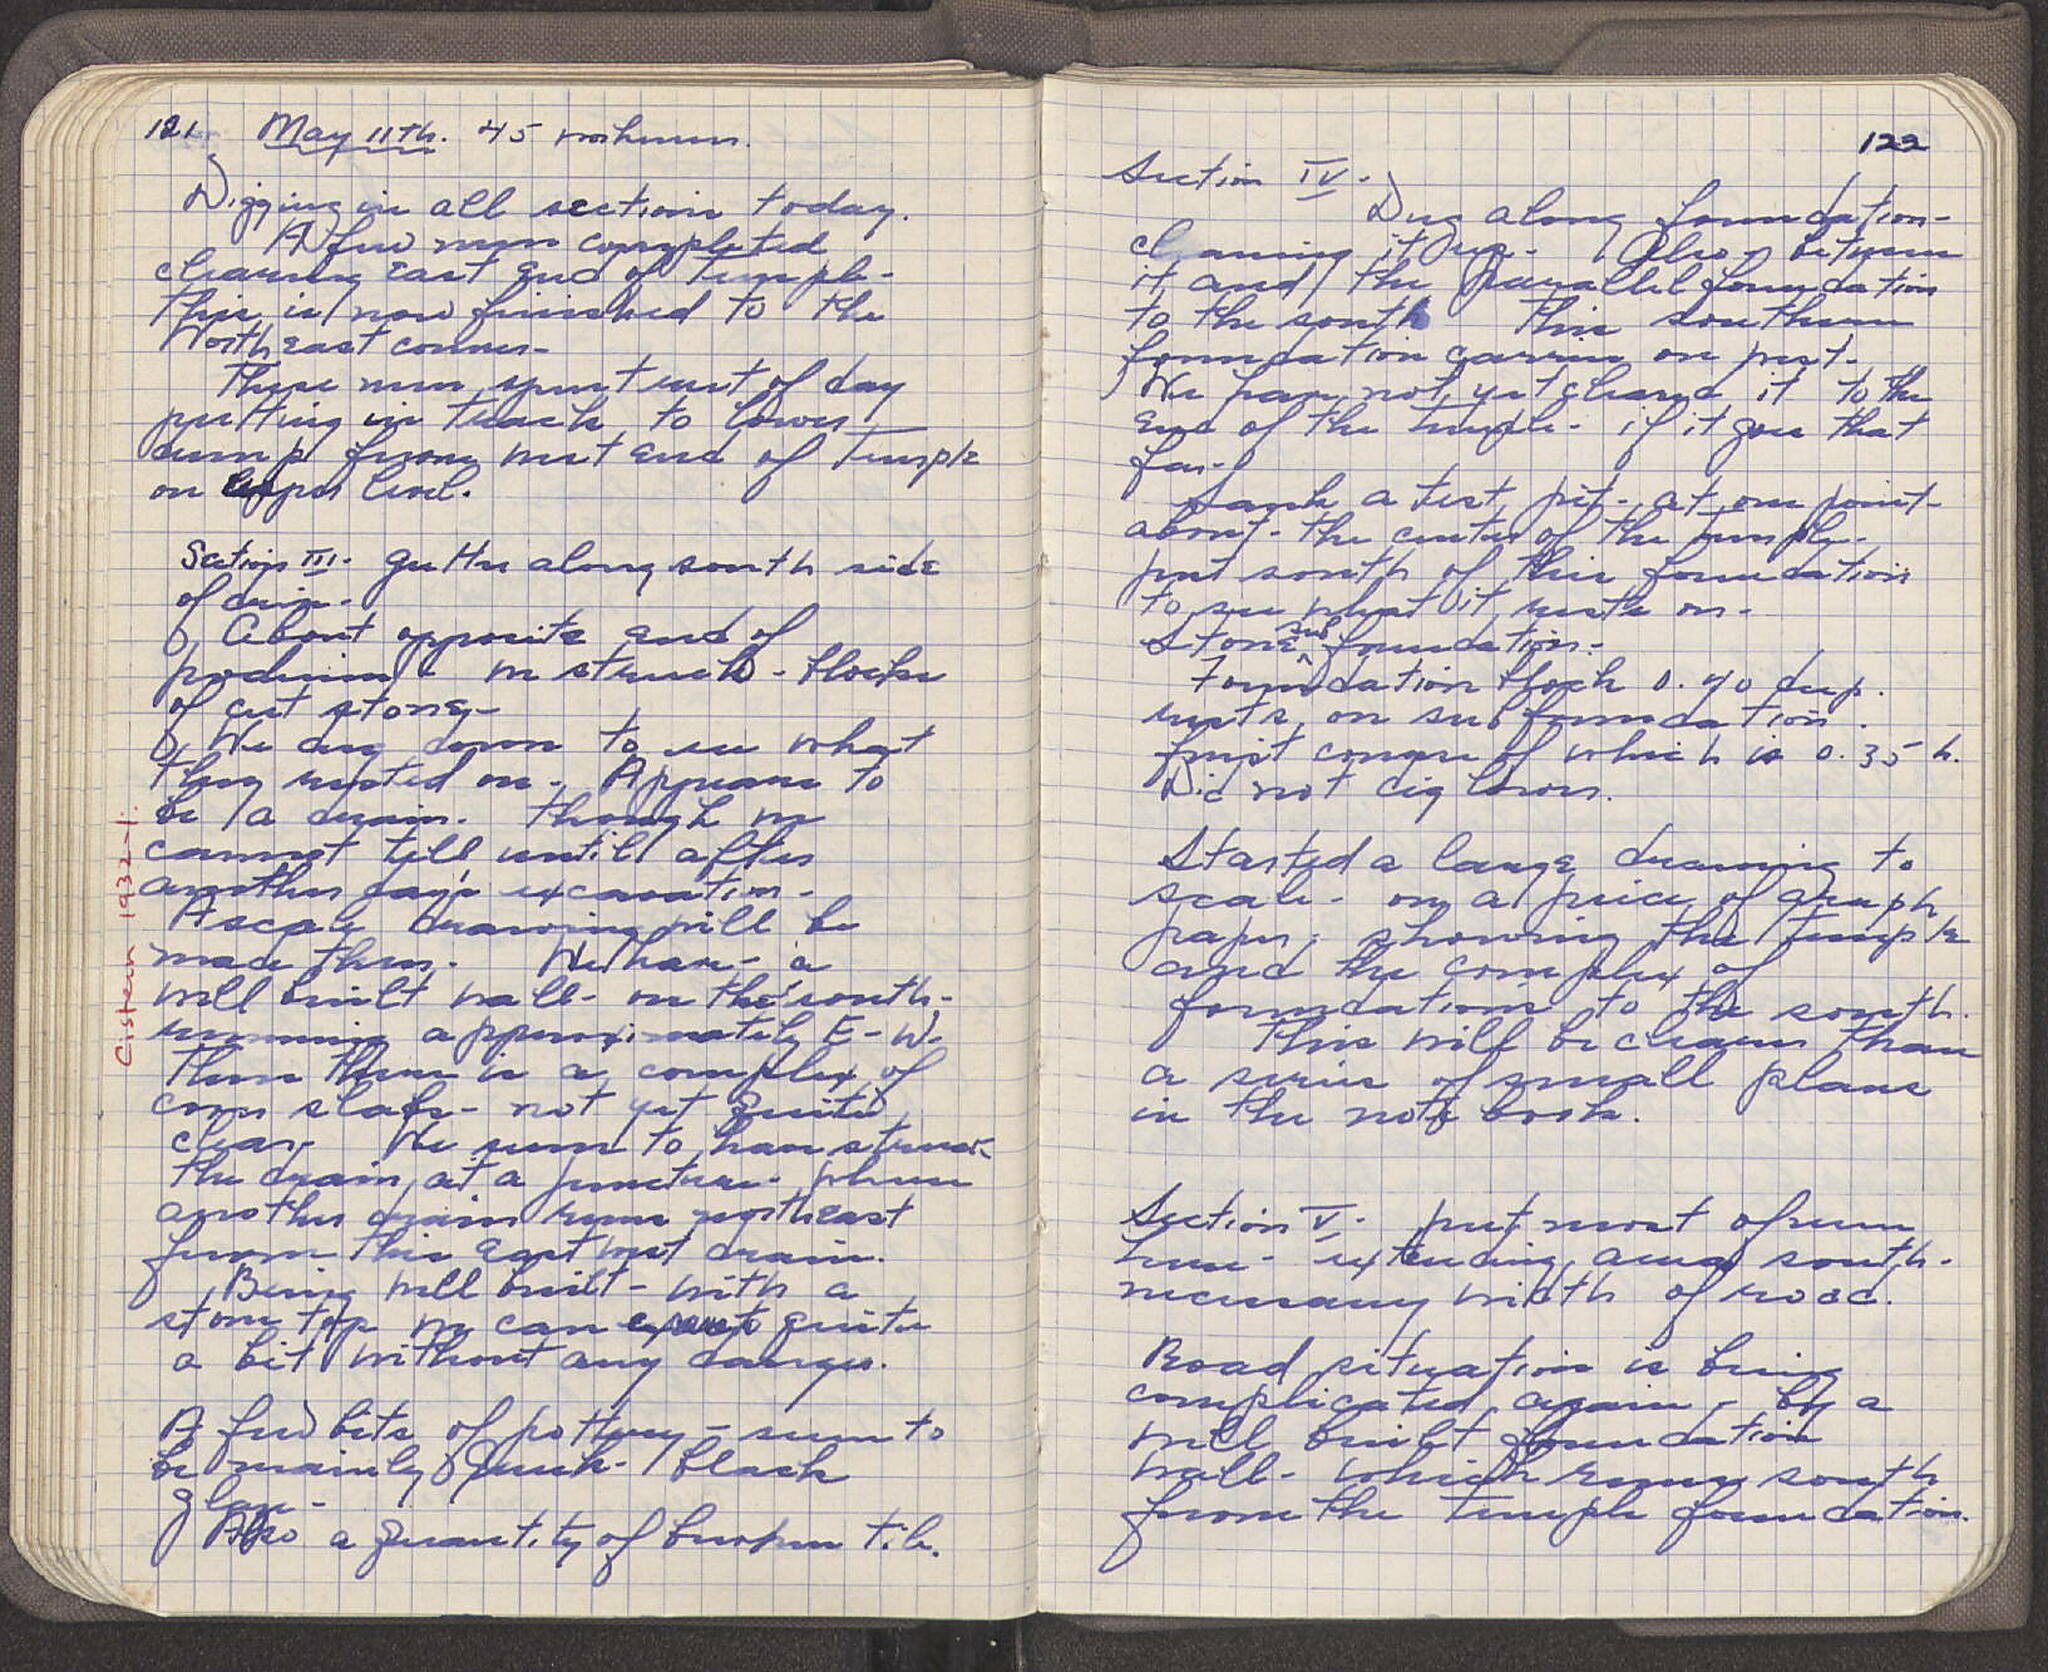 121 May 11th. 45 workmen.
Digging in all sections today.
A few men completed
clearing east end of Temple-
this is now finished to the
North east corner-
These men spent rest of day
putting in track to lower
dump from west end of Temple
on upper level.
Section III. gutter along south side
of drip-
About opposite end of
we struck - blocks
of cut stone-
We dug down to see what
they rested on. Appears to
be a drain. though we
cannot tell until after
another day's excavation-
A scale drawing will be
made then. We have - a
well built wall - on the south-
running approximately E-W.
Then there is a complex of
cover slabs - not yet quite
clear. We seem to have struck
the drain at a juncture - where
another drain runs northeast
from this east west drain.
Being well built - with a
stone top we can expect quite
a bit without any danger.
A few bits of pottery - seem to
be mainly Greek - black
glaze -
Also a quantity of broken tile.
Cistern 1932-1.
122
Section IV.
Dug along foundation-
cleaning it up. Also between
it and the parallel foundation
to the south This southern
foundation carries on west.
We have not yet cleared it to the
end of the temple - if it goes that
far-
Sank a test pit - at one point
about - the center of the temple-
just south of this foundation
to see what it rests on-
Stone sub foundation.-
Foundation block 0.40 deep.
rests on sub foundation.
first course of which is 0.35 h.
Did not dig lower.
Started a large drawing to
scale - on a piece of graph
paper; showing the temple
and the complex of
foundations to the south.
This will be clearer than
a series of small plans
in the note book.
Section V. put most of men
here - extending area south-
necessary width of road.
Road situation is being
complicated again - by a
well built foundation
wall - which runs south
from the temple foundation.